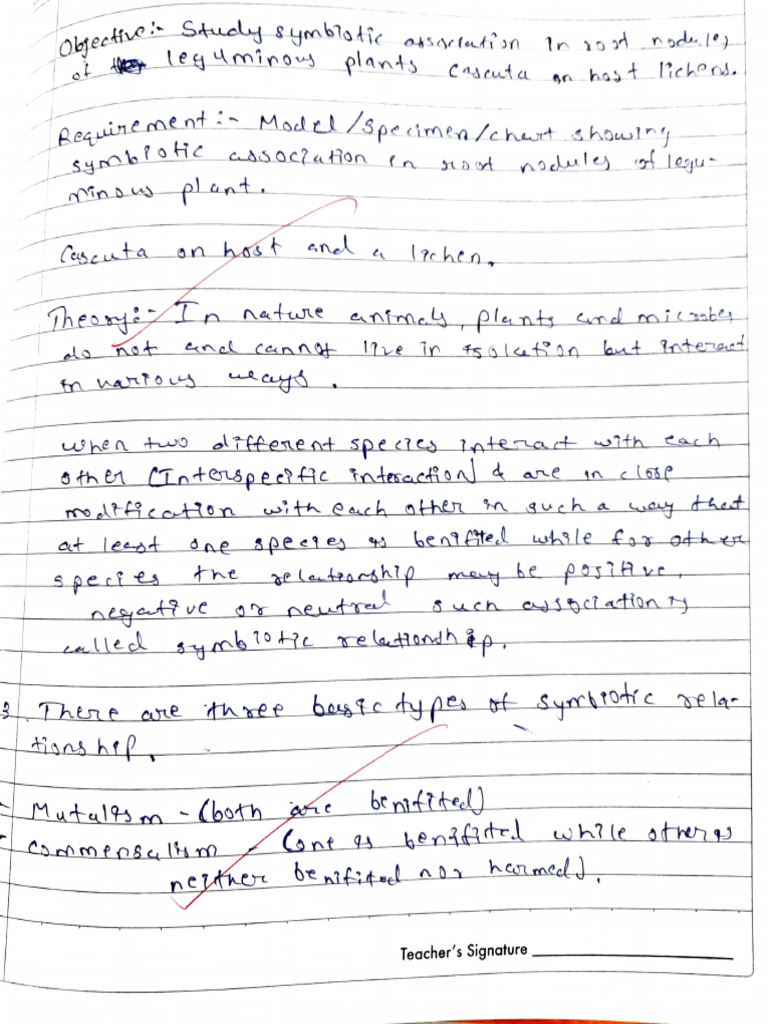 Objective:- Study symbiotic association in root nodules
of leguminous plants Cascuta on host lichens.
Requirement:- Model/specimen/chart showing
symbiotic association in root nodules of legu-
minous plant.
Cascuta on host and a lichen.
Theory:- In nature animals, plants and microbes
do not and cannot live in isolation but interact
in various ways.
when two different species interact with each
other (Interspecific interaction) & are in close
modification with each other in such a way that
at least one species is benifited while for other
species the relationship may be positive,
negative or neutral such association is
called symbiotic relationship.
3. There are three basic types of symbiotic rela-
tionship.
- Mutalism - (both are benifited)
- commensalism - (one is benifited while other is
neither benifited nor harmed).
Teacher's Signature